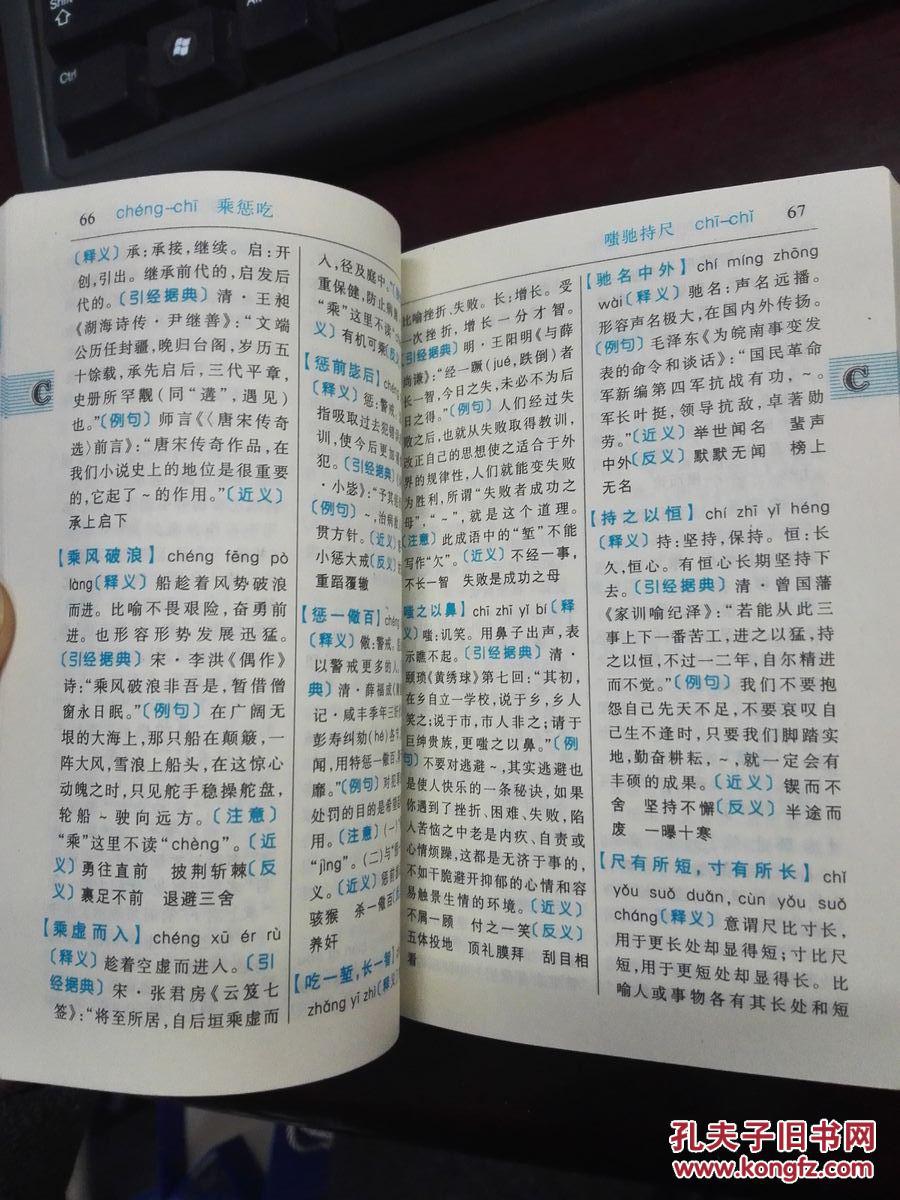 Shift
Ctrl
Alt
66 chéng—chī 乘惩吃
〔释义〕承:承接,继续。启:开
创,引出。继承前代的,启发后
代的。〔引经据典〕清·王昶
《湖海诗传·尹继善》:“文端
公历任封疆,晚归台阁,岁历五
十馀载,承先启后,三代平章,
史册所罕觏(同“遘”,遇见)
也。”〔例句〕师言《〈唐宋传奇
选〉前言》:“唐宋传奇作品,在
我们小说史上的地位是很重要
的,它起了~的作用。”〔近义〕
承上启下
【乘风破浪】chéng fēng pò
làng〔释义〕船趁着风势破浪
而进。比喻不畏艰险,奋勇前
进。也形容形势发展迅猛。
〔引经据典〕宋·李洪《偶作》
诗:“乘风破浪非吾是,暂借僧
窗永日眠。”〔例句〕在广阔无
垠的大海上,那只船在颠簸,一
阵大风,雪浪上船头,在这惊心
动魄之时,只见舵手稳操舵盘,
轮船~驶向远方。〔注意〕
“乘”这里不读“chèng”。〔近
义〕勇往直前 披荆斩棘〔反
义〕裹足不前 退避三舍
【乘虚而入】chéng xū ér rù
〔释义〕趁着空虚而进入。〔引
经据典〕宋·张君房《云笈七
签》:“将至所居,自后垣乘虚而
入,径及庭中。”
重保健,防止病
“乘”这里不读“
义〕有机可乘〔反
【惩前毖后】chéng
〔释义〕惩:警戒
指吸取过去犯错
训,使今后更加
犯。〔引经据典〕
·小毖》:“予其
〔例句〕~,治病
贯方针。〔近义〕
小惩大戒〔反义〕
重蹈覆辙
【惩一儆百】chéng
〔释义〕儆:警戒。
以警戒更多的人。
典〕清·薛福成《
记·咸丰季年三
彭寿纠劾(hé)各
闻,用特惩一儆百,
靡。”〔例句〕对
处罚的目的是希望
用。〔注意〕(一)“
“jìng”。(二)与“
义。〔近义〕惩前
骇猴 杀一儆百〔
养奸
【吃一堑,长一智】
zhǎng yī zhì〔释义〕
嗤驰持尺 chī—chǐ 67
比喻挫折、失败。长:增长。受
一次挫折,增长一分才智。
〔引经据典〕明·王阳明《与薛
尚谦》:“经一蹶(jué,跌倒)者
长一智,今日之失,未必不为后
日之得。”〔例句〕人们经过失
败之后,也就从失败取得教训,
改正自己的思想使之适合于外
界的规律性,人们就能变失败
为胜利,所谓“失败者成功之
母”,“~”,就是这个道理。
〔注意〕此成语中的“堑”不能
写作“欠”。〔近义〕不经一事,
不长一智 失败是成功之母
【嗤之以鼻】chī zhī yǐ bí〔释
义〕嗤:讥笑。用鼻子出声,表
示瞧不起。〔引经据典〕清·
颐琐《黄绣球》第七回:“其初,
在乡自立一学校,说于乡,乡人
笑之;说于市,市人非之;请于
巨绅贵族,更嗤之以鼻。”〔例
句〕不要对逃避~,其实逃避也
是使人快乐的一条秘诀,如果
你遇到了挫折、困难、失败,陷
入苦恼之中老是内疚、自责或
心情烦躁,这都是无济于事的,
不如干脆避开抑郁的心情和容
易触景生情的环境。〔近义〕
不屑一顾 付之一笑〔反义〕
五体投地 顶礼膜拜 刮目相
看
【驰名中外】chí míng zhōng
wài〔释义〕驰名:声名远播。
形容声名极大,在国内外传扬。
〔例句〕毛泽东《为皖南事变发
表的命令和谈话》:“国民革命
军新编第四军抗战有功,~。
军长叶挺,领导抗敌,卓著勋
劳。”〔近义〕举世闻名 蜚声
中外〔反义〕默默无闻 榜上
无名
【持之以恒】chí zhī yǐ héng
〔释义〕持:坚持,保持。恒:长
久,恒心。有恒心长期坚持下
去。〔引经据典〕清·曾国藩
《家训喻纪泽》:“若能从此三
事上下一番苦工,进之以猛,持
之以恒,不过一二年,自尔精进
而不觉。”〔例句〕我们不要抱
怨自己先天不足,不要哀叹自
己生不逢时,只要我们脚踏实
地,勤奋耕耘,~,就一定会有
丰硕的成果。〔近义〕锲而不
舍 坚持不懈〔反义〕半途而
废 一曝十寒
【尺有所短,寸有所长】chǐ
yǒu suǒ duǎn, cùn yǒu suǒ
cháng〔释义〕意谓尺比寸长,
用于更长处却显得短;寸比尺
短,用于更短处却显得长。比
喻人或事物各有其长处和短
C
C
孔夫子旧书网
www.kongfz.com